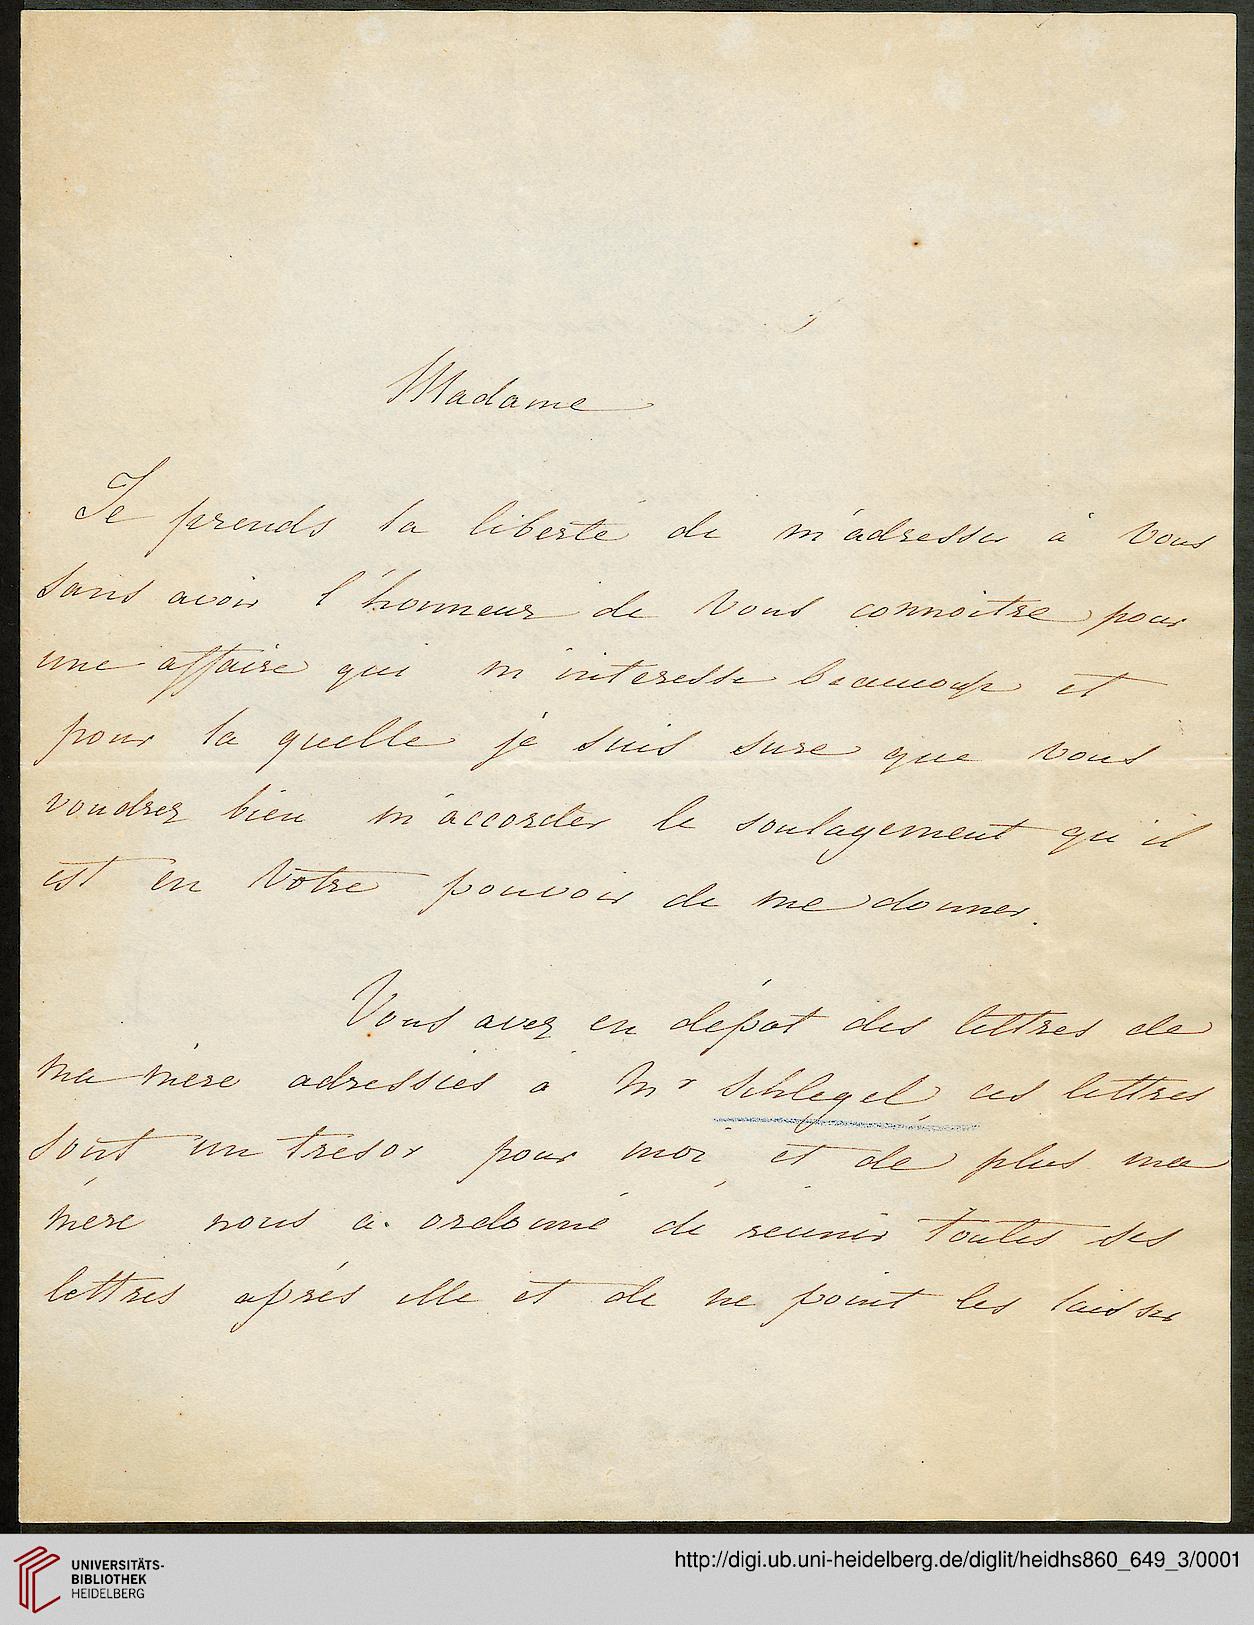 Madame
Je prends la liberté de m'adresser à vous
sans avoir l'honneur de Vous connoitre pour
une affaire qui m'interesse beaucoup et
pour la quelle je suis sure que vous
voudrez bien m'accorder le soulagement qu'il
est en Votre pouvoir de me donner.
Vous avez en dépot des lettres de
ma mère adressées à Mr Schlegel, ces lettres
sont un tresor pour moi, et de plus ma
mère nous a ordonné de reunir toutes ses
lettres après elle et de ne point les laisser
UNIVERSITÄTS-
BIBLIOTHEK
HEIDELBERG
http://digi.ub.uni-heidelberg.de/diglit/heidhs860_649_3/0001